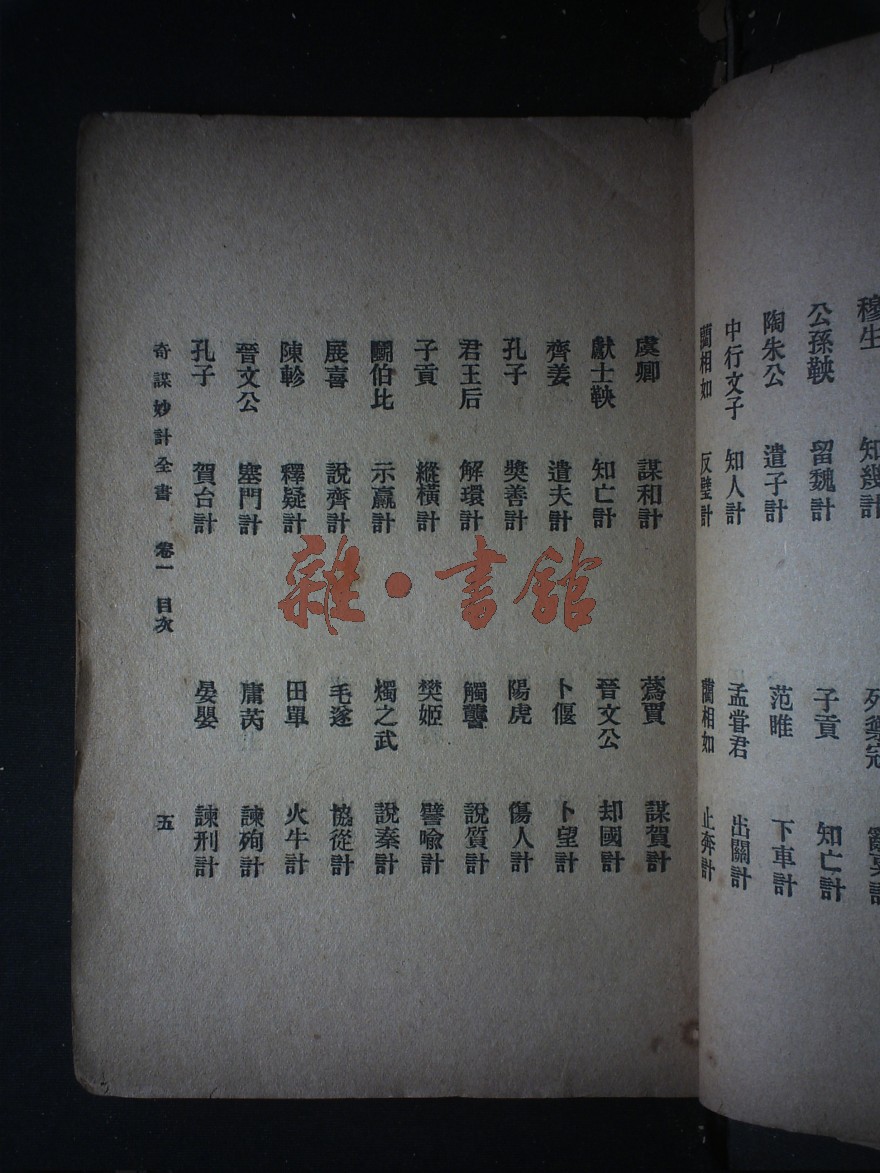 穆生　知幾計
公孫鞅　留魏計　子貢　知亡計
陶朱公　遣子計　范睢　下車計
中行文子　知人計　孟嘗君　出關計
藺相如　反璧計　藺相如　止奔計
虞卿　謀和計　蒍賈　謀賀計
獻士鞅　知亡計　晉文公　却國計
齊姜　遣夫計　卜偃　卜望計
孔子　獎善計　陽虎　傷人計
君王后　解環計　觸讋　說質計
子貢　縱橫計　樊姬　譬喻計
鬭伯比　示羸計　燭之武　說秦計
展喜　說齊計　毛遂　協從計
陳軫　釋疑計　田單　火牛計
晉文公　塞門計　庸芮　諫殉計
孔子　賀台計　晏嬰　諫刑計
奇謀妙計全書　卷一　目次　五
雜·書館